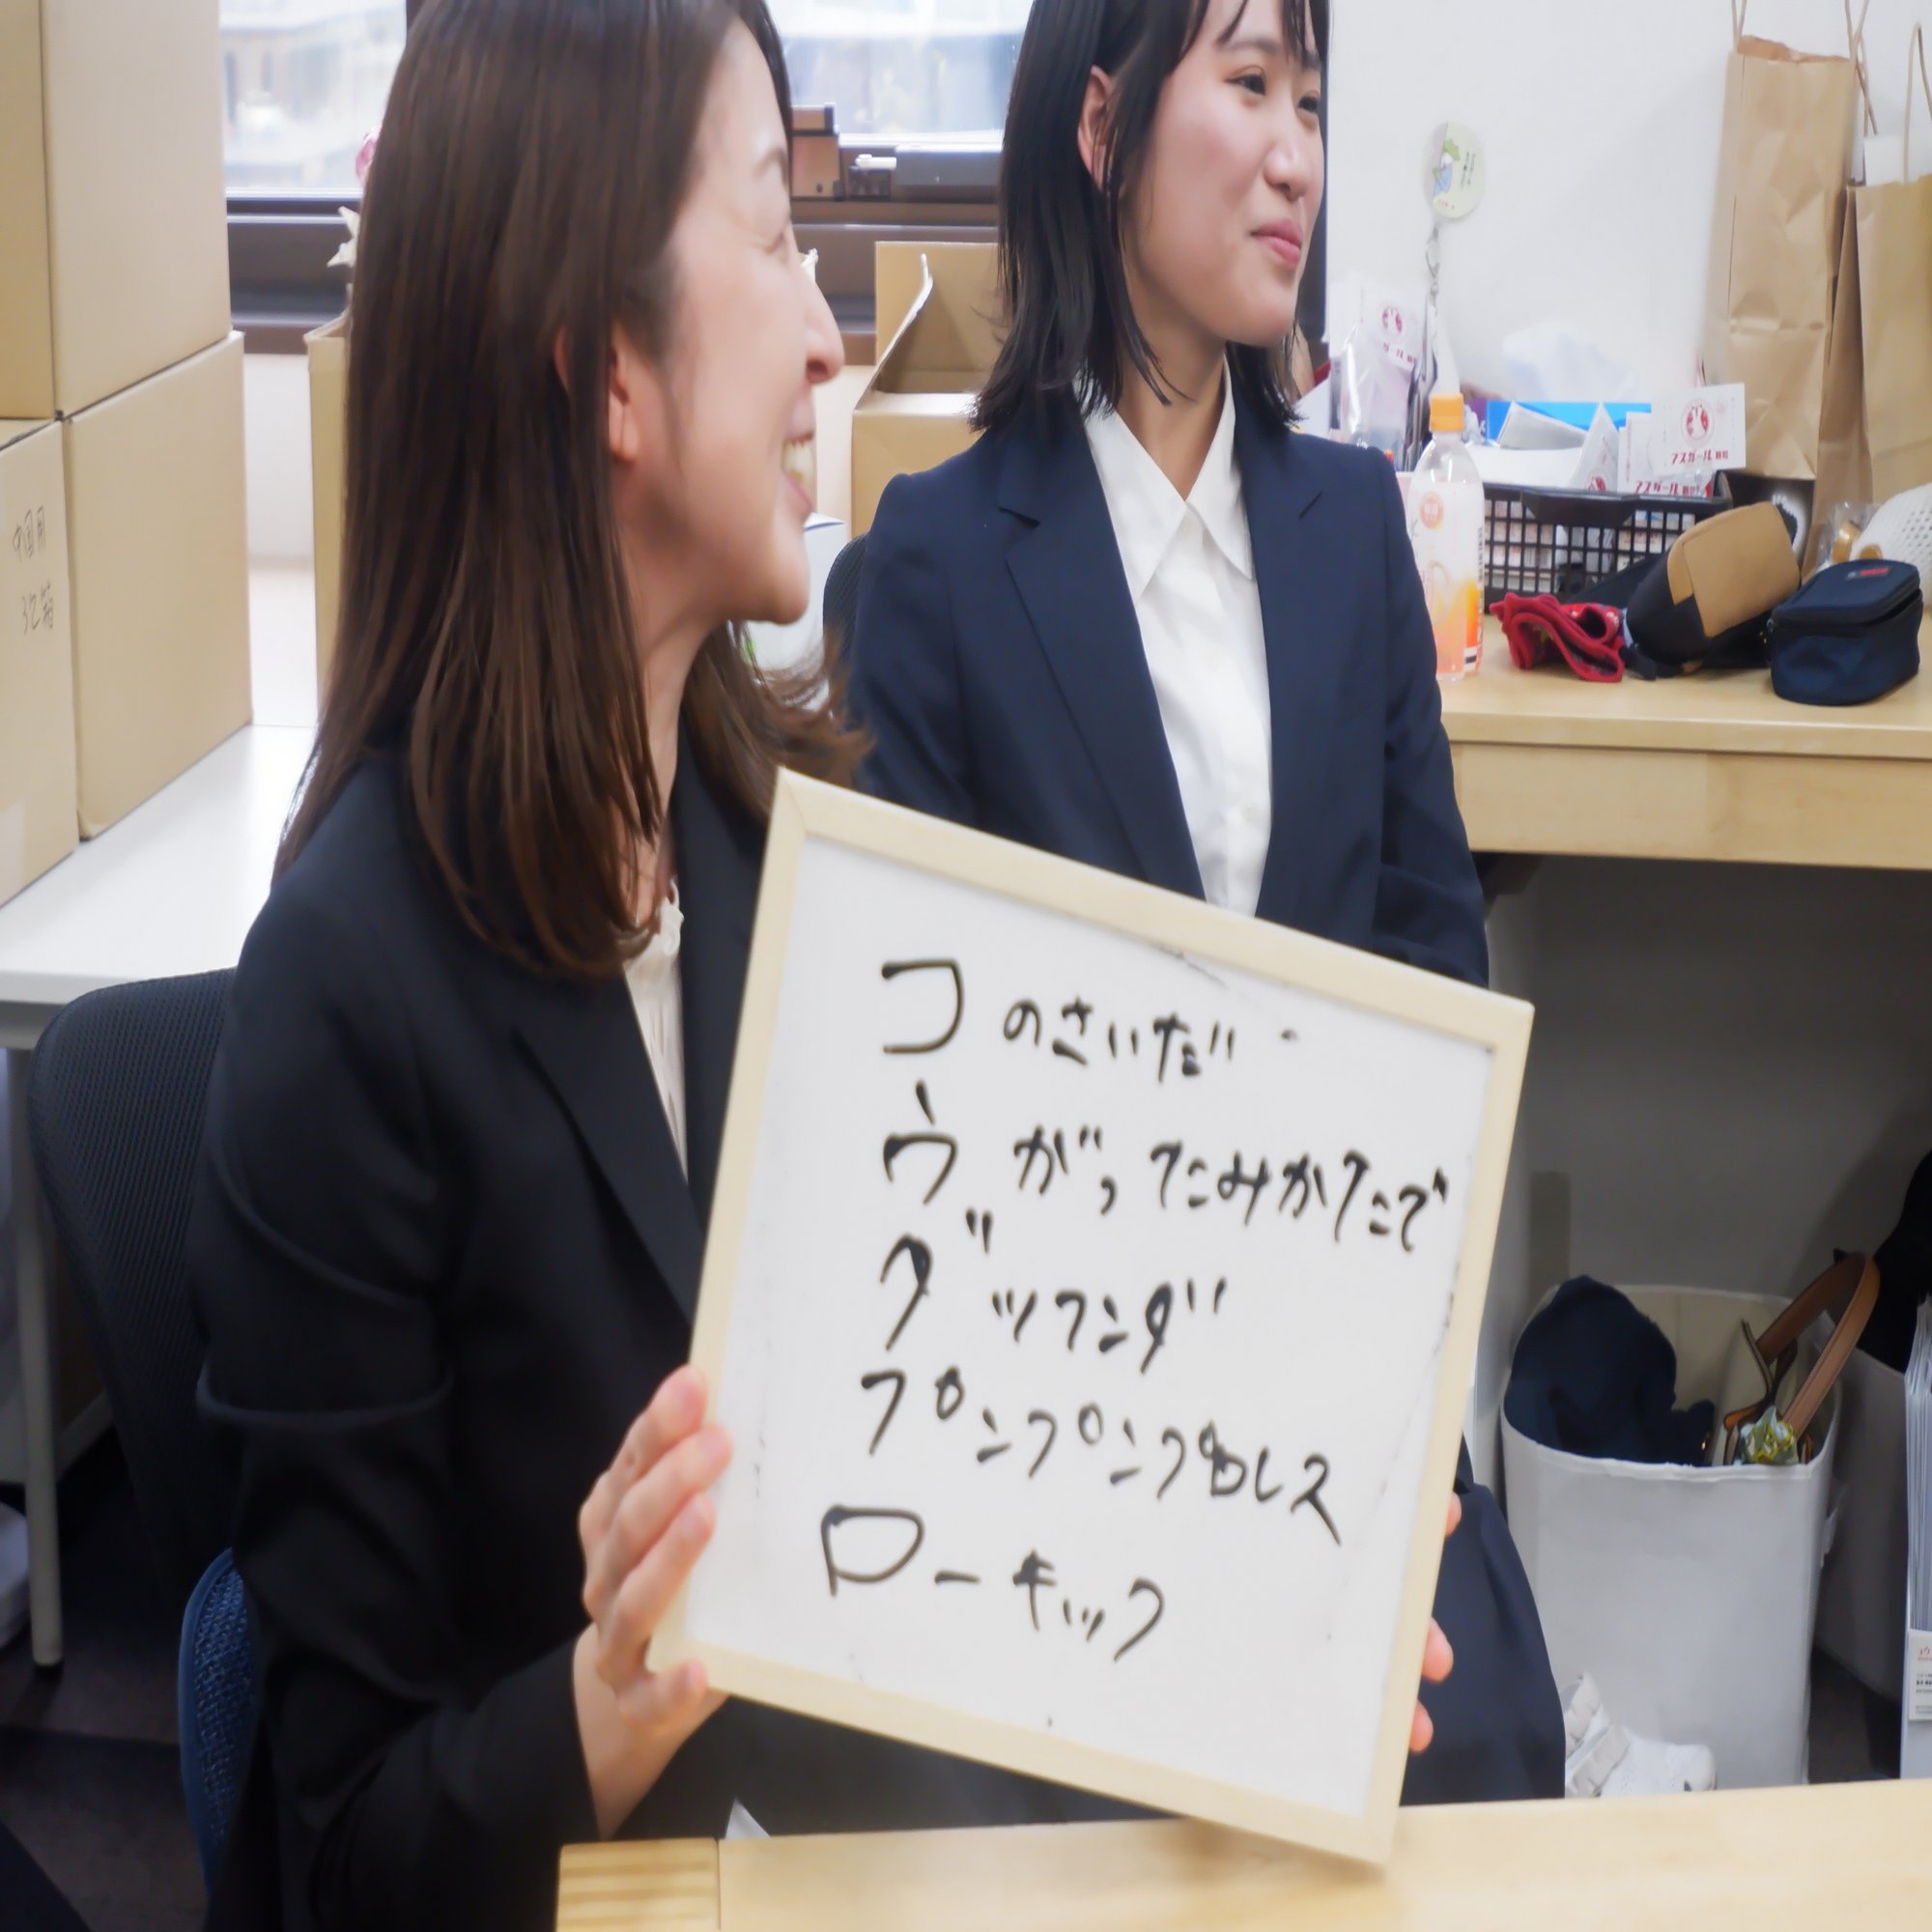 コのさいだ
ウがったみかたで
ダッフンダ
プンプンプロレス
ローキック
中国用
アスガール
アスガール